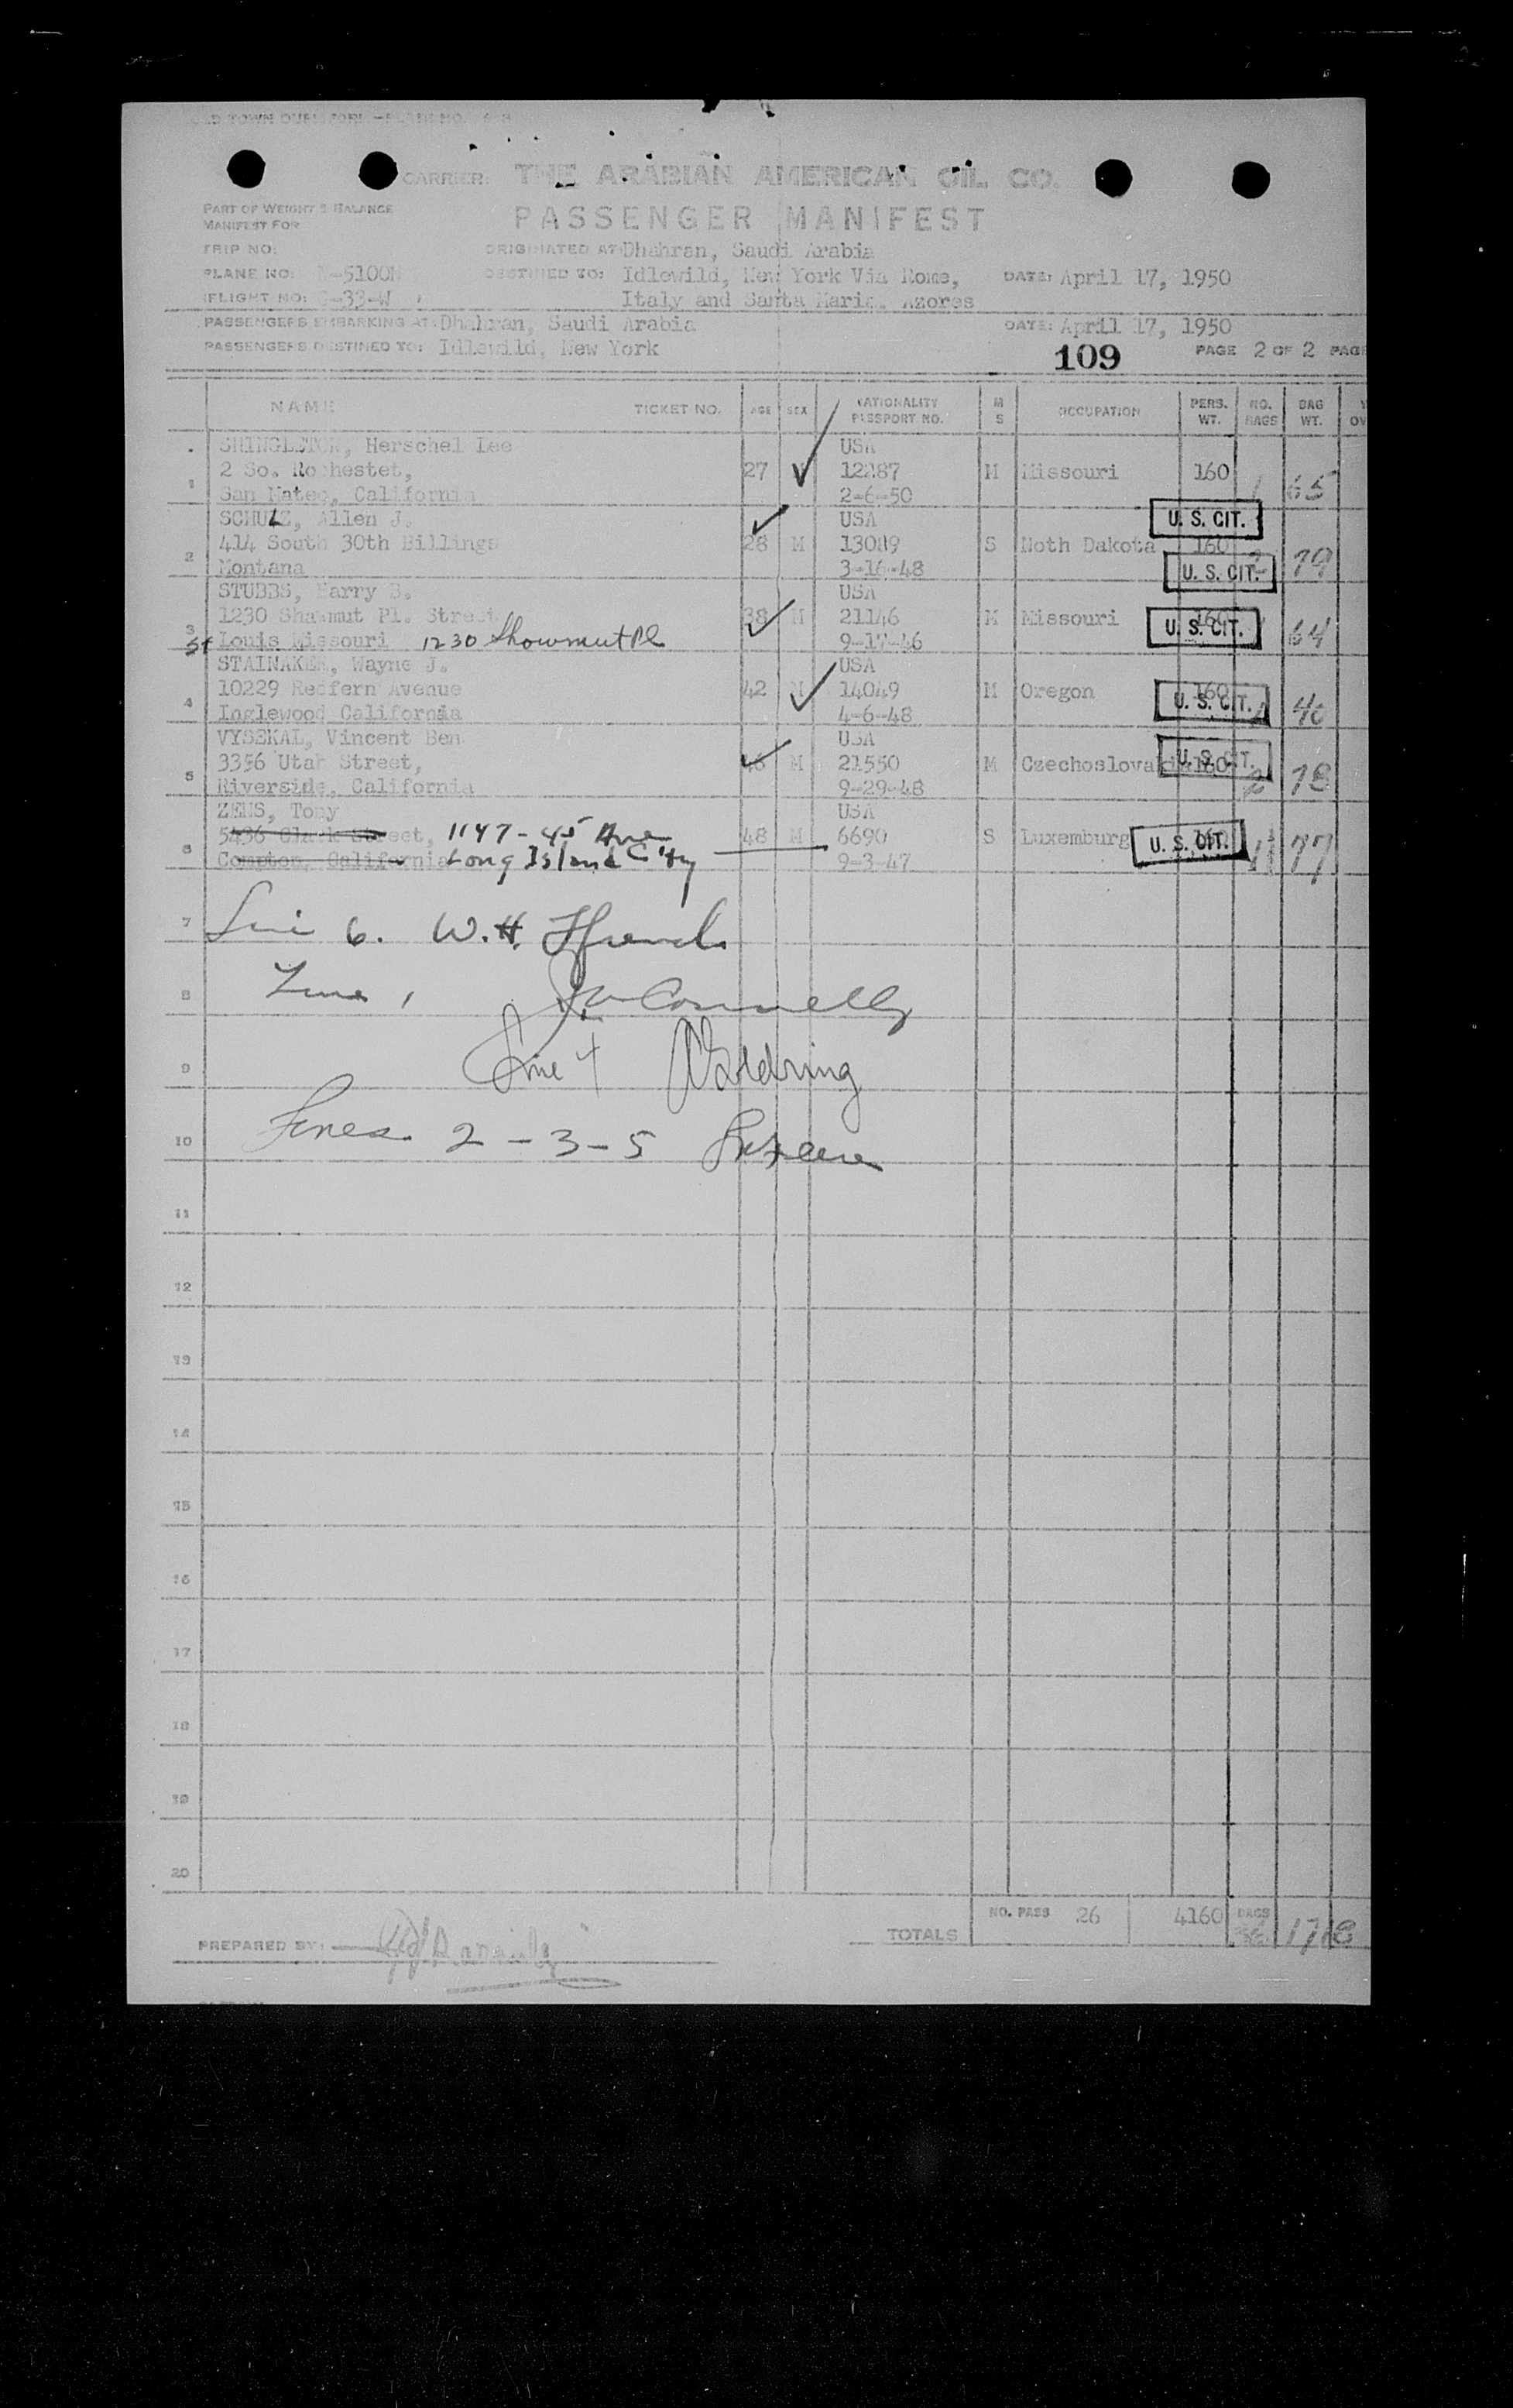 CARRIER: THE ARABIAN AMERICAN OIL CO.
PART OF WEIGHT & BALANCE
MANIFEST FOR
PASSENGER MANIFEST
TRIP NO: ORIGINATED AT: Dhahran, Saudi Arabia
PLANE NO: N-5100N DESTINED TO: Idlewild, New York Via Rome, DATE: April 17, 1950
FLIGHT NO: C-33-W Italy and Santa Maria, Azores
PASSENGERS EMBARKING AT: Dhahran, Saudi Arabia DATE: April 17, 1950
PASSENGERS DESTINED TO: Idlewild, New York 109 PAGE 2 OF 2 PAGE
NAME TICKET NO. AGE SEX NATIONALITY PASSPORT NO. M S OCCUPATION PERS. WT. NO. BAGS BAG WT.
SHINGLETON, Herschel Lee USA
1 2 So. Rochestet, 27 M 12287 M Missouri 160 1 65
San Mateo, California 2-6-50
SCHULZ, Allen J. USA U. S. CIT.
2 414 South 30th Billings 28 M 13089 S Noth Dakota 160 2 79
Montana 3-16-48 U. S. CIT.
STUBBS, Harry B. USA
3 1230 Shawmut Pl. Street 38 M 21146 M Missouri 160 U. S. CIT. 1 64
St Louis Missouri 1230 Showmut Pl 9-17-46
STAINAKER, Wayne J. USA
4 10229 Redfern Avenue 42 M 14049 M Oregon 160 U. S. CIT. 1 40
Inglewood California 4-6-48
VYSEKAL, Vincent Ben USA
5 3356 Utah Street, 46 M 21550 M Czechoslovakia 160 U. S. CIT. 2 78
Riverside, California 9-29-48
ZENS, Tony USA
6 5436 Clark Street, 1147-45 Ave 48 M 6690 S Luxemburg 160 U. S. CIT. 77
Compton, California Long Island City 9-3-47
7 Line 6. W.H.
8 Line 1 Connelly
9 Line 4 Goldring
10 Lines 2-3-5
11
12
13
14
15
16
17
18
19
20
NO. PASS 26 4160 BAGS 1718
PREPARED BY: TOTALS